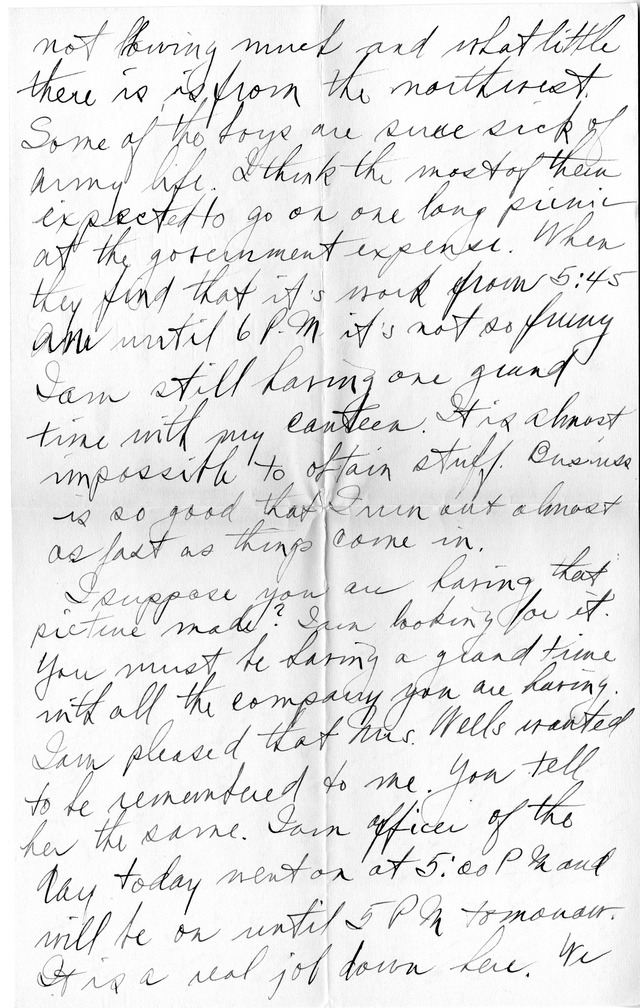 not blowing much and what little
there is is from the northwest.
Some of the boys are sure sick of
army life. I think the most of them
expected to go on one long picnic
at the government expense. When
they find that it's work from 5:45
AM until 6 P.M it's not so funny
I am still having one grand
time with my canteen. It is almost
impossible to obtain stuff. Business
is so good that I run out almost
as fast as things come in.
I suppose you are having that
picture made? I am looking for it.
You must be having a grand time
with all the company you are having.
I am pleased that Mrs. Wells wanted
to be remembered to me. You tell
her the same. I am officer of the
day today went on at 5:00 P M and
will be on until 5 P M tomorrow.
It is a real job down here. We